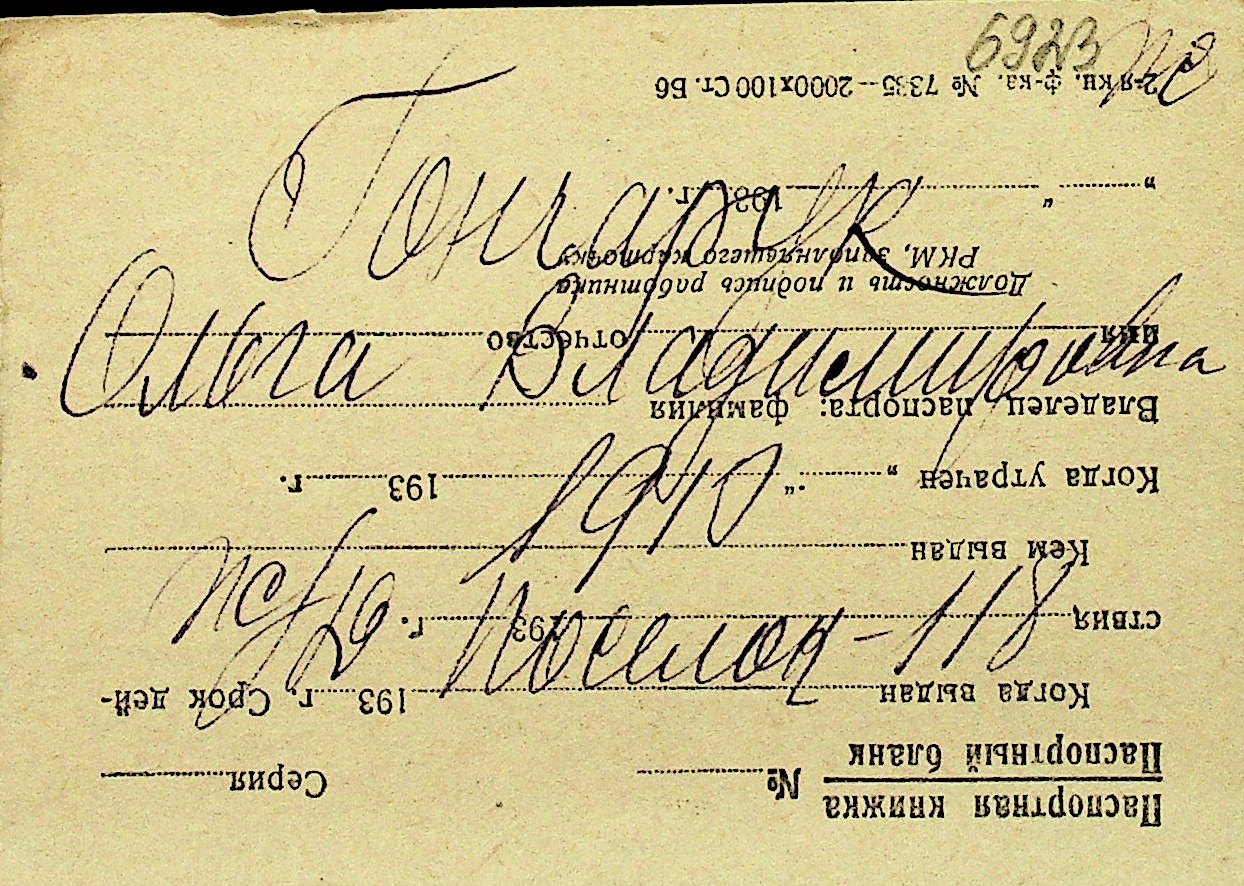 6923
Гончарук
Ольга Владимировна
1910
ж/д. поселок - 118
Паспортная книжка
Паспортный бланк № Серия
Когда выдан 193 г. Срок дей-
ствия 193 г.
Кем выдан
Когда утрачен „ “ 193 г.
Владелец паспорта: фамилия
имя отчество
Должность и подпись работника
РКМ, заполнявшего карточку
„ “ 193 г.
2-я кн. ф-ка. № 7335—2000х100 Ст. Б6